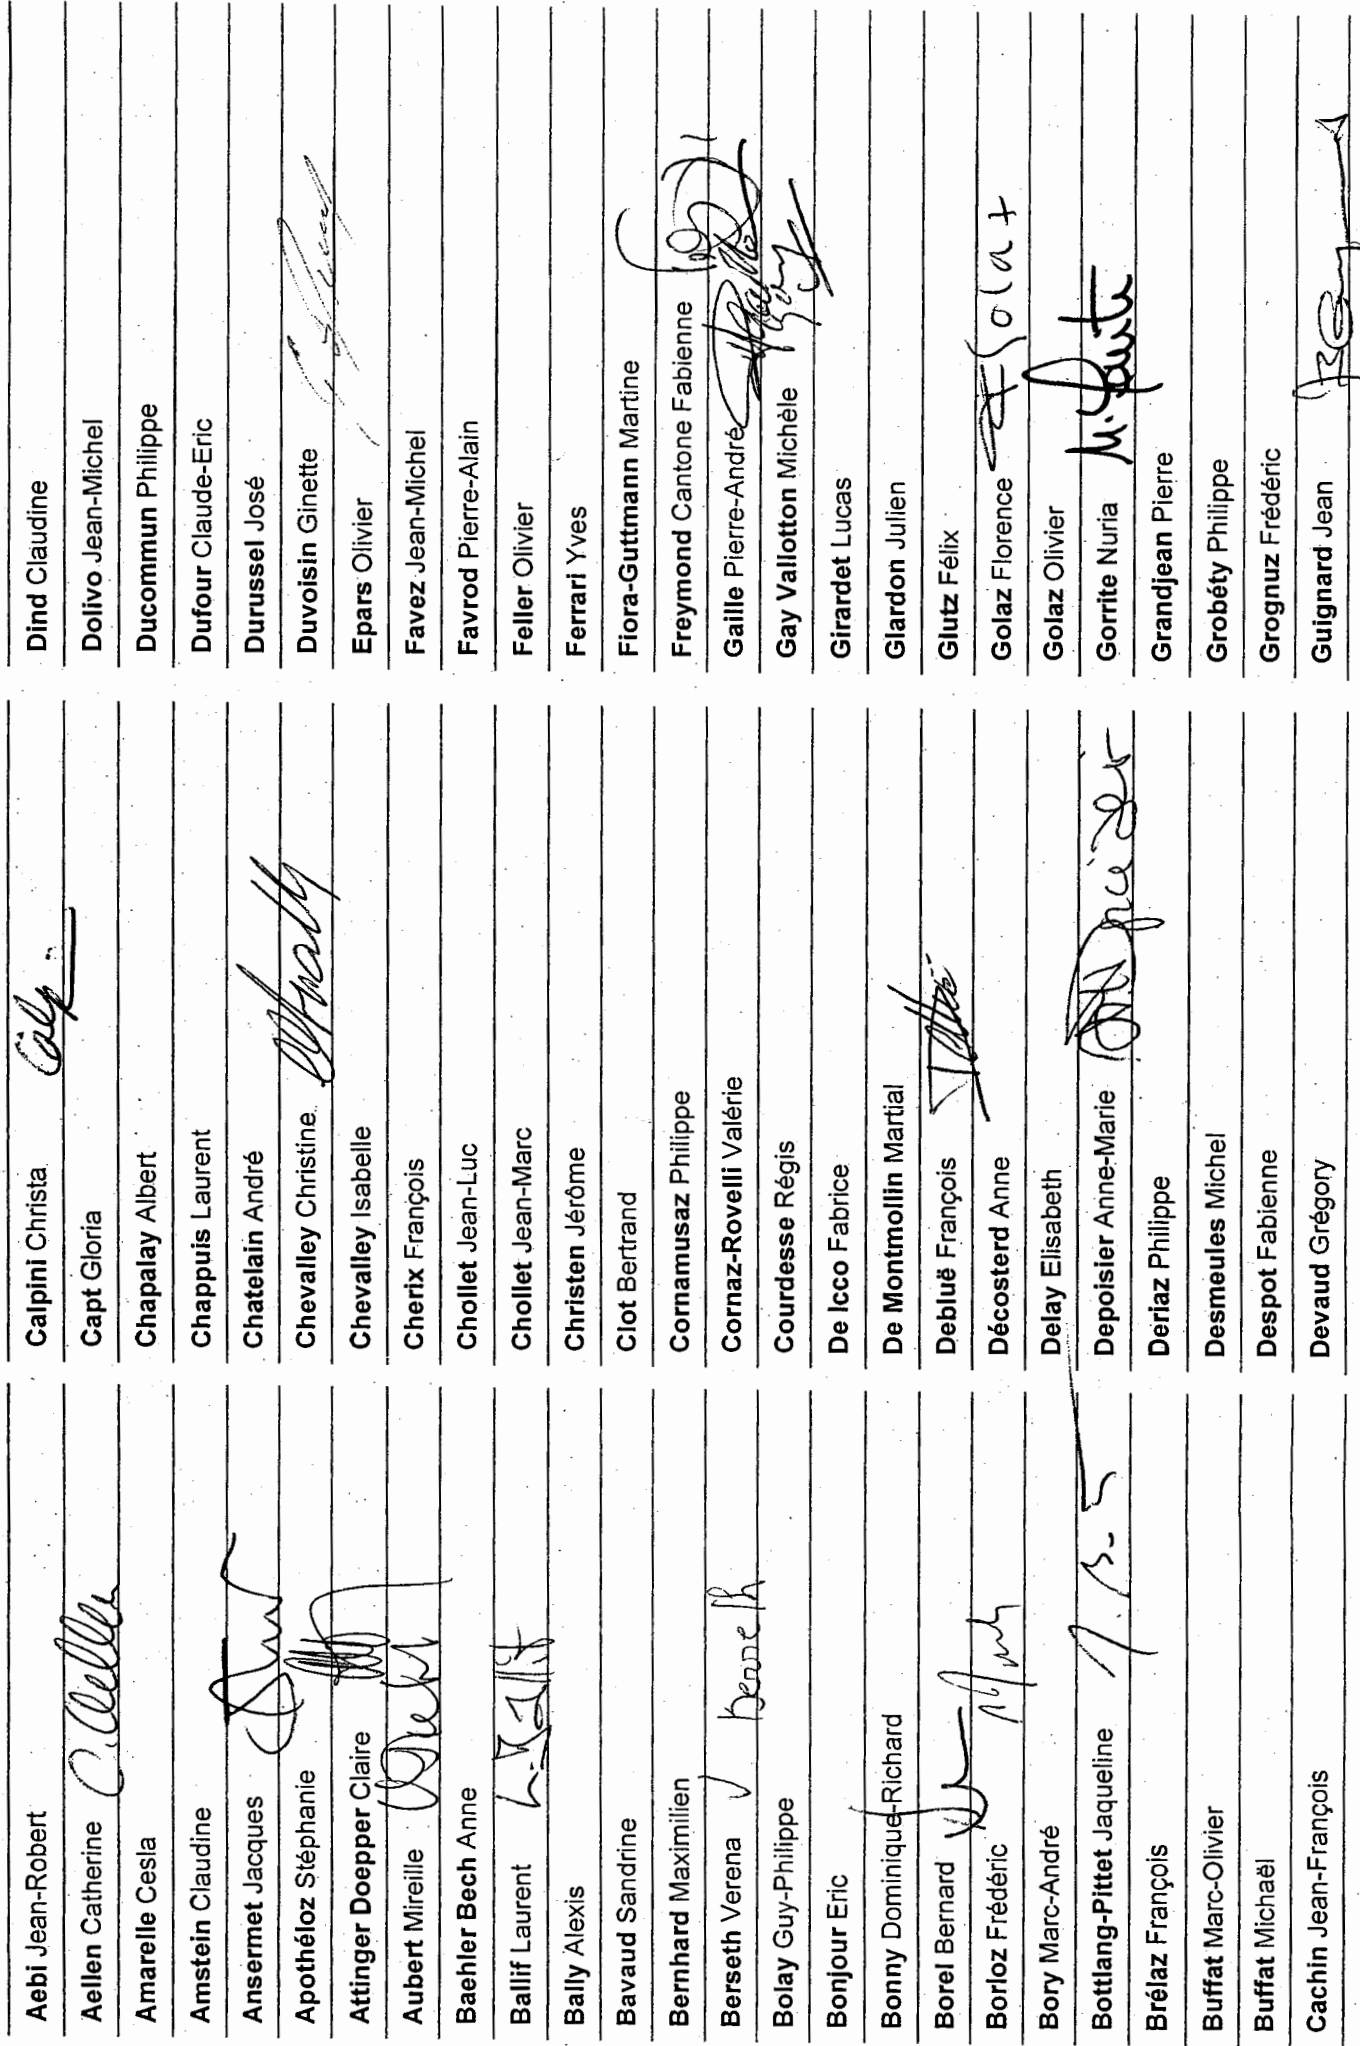 Aebi Jean-Robert
Aellen Catherine C. Aellen
Amarelle Cesla
Amstein Claudine
Ansermet Jacques
Apothéloz Stéphanie
Attinger Doepper Claire
Aubert Mireille
Baehler Bech Anne
Ballif Laurent L. Ballif
Bally Alexis
Bavaud Sandrine
Bernhard Maximilien
Berseth Verena V Berseth
Bolay Guy-Philippe
Bonjour Eric
Bonny Dominique-Richard
Borel Bernard
Borloz Frédéric
Bory Marc-André
Bottlang-Pittet Jaqueline
Brélaz François
Buffat Marc-Olivier
Buffat Michaël
Cachin Jean-François
Calpini Christa
Capt Gloria
Chapalay Albert
Chappuis Laurent
Chatelain André
Chevalley Christine
Chevalley Isabelle
Cherix François
Chollet Jean-Luc
Chollet Jean-Marc
Christen Jérôme
Clot Bertrand
Cornamusaz Philippe
Cornaz-Rovelli Valérie
Courdesse Régis
De Icco Fabrice
De Montmollin Martial
Debluë François
Décosterd Anne
Delay Elisabeth
Depoisier Anne-Marie
Deriaz Philippe
Desmeules Michel
Despot Fabienne
Devaud Grégory
Dind Claudine
Dolivo Jean-Michel
Ducommun Philippe
Dufour Claude-Eric
Durussel José
Duvoisin Ginette
Epars Olivier
Favez Jean-Michel
Favrod Pierre-Alain
Feller Olivier
Ferrari Yves
Fiora-Guttmann Martine
Freymond Cantone Fabienne
Gaille Pierre-André
Gay Vallotton Michèle
Girardet Lucas
Glardon Julien
Glutz Félix
Golaz Florence
Golaz Olivier
Gorrite Nuria
Grandjean Pierre
Grobéty Philippe
Grognuz Frédéric
Guignard Jean